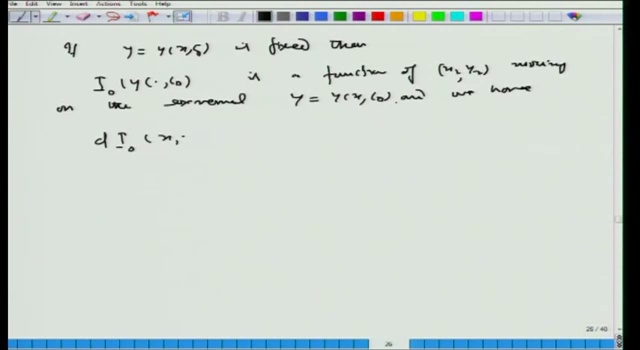 File Edit View Insert Actions Tools Help
If y = y(x, c₀) is fixed then
I₀(y(·, c₀) is a function of (x₂, y₂) moving
on the extremal y = y(x, c₀) and we have
d I₀ (x,
26 / 40
26